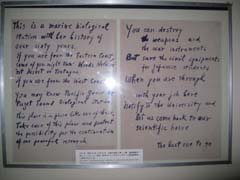 This is a marine biological
station with her history of
over sixty years.
If you are from the Eastern Coast
some of you might know Woods Hole
or Mt Desert or Tortugas.
If you are from the West Coast
You may know Pacific Grove or
Puget Sound Biological Station
This place is a place like one of these.
Take care of this place and protect
the possibility for the continuation
of our peaceful research.
You can destroy
the weapons and
the war instruments
But save the civil equipments
for Japanese students
When you are through
with your job here
Notify to the University and
let us come back to our
scientific home
The last one to go